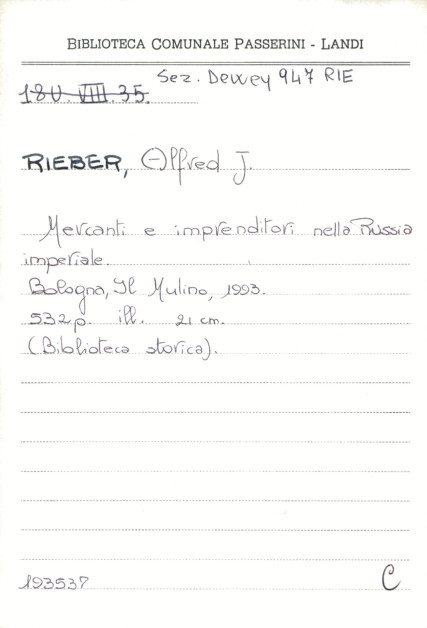 BIBLIOTECA COMUNALE PASSERINI - LANDI
Sez. Dewey 947 RIE
180. VIII. 35.
RIEBER, Alfred J.
Mercanti e imprenditori nella Russia
imperiale.
Bologna, Il Mulino, 1993.
532 p. ill. 21 cm.
(Biblioteca storica).
193537 C